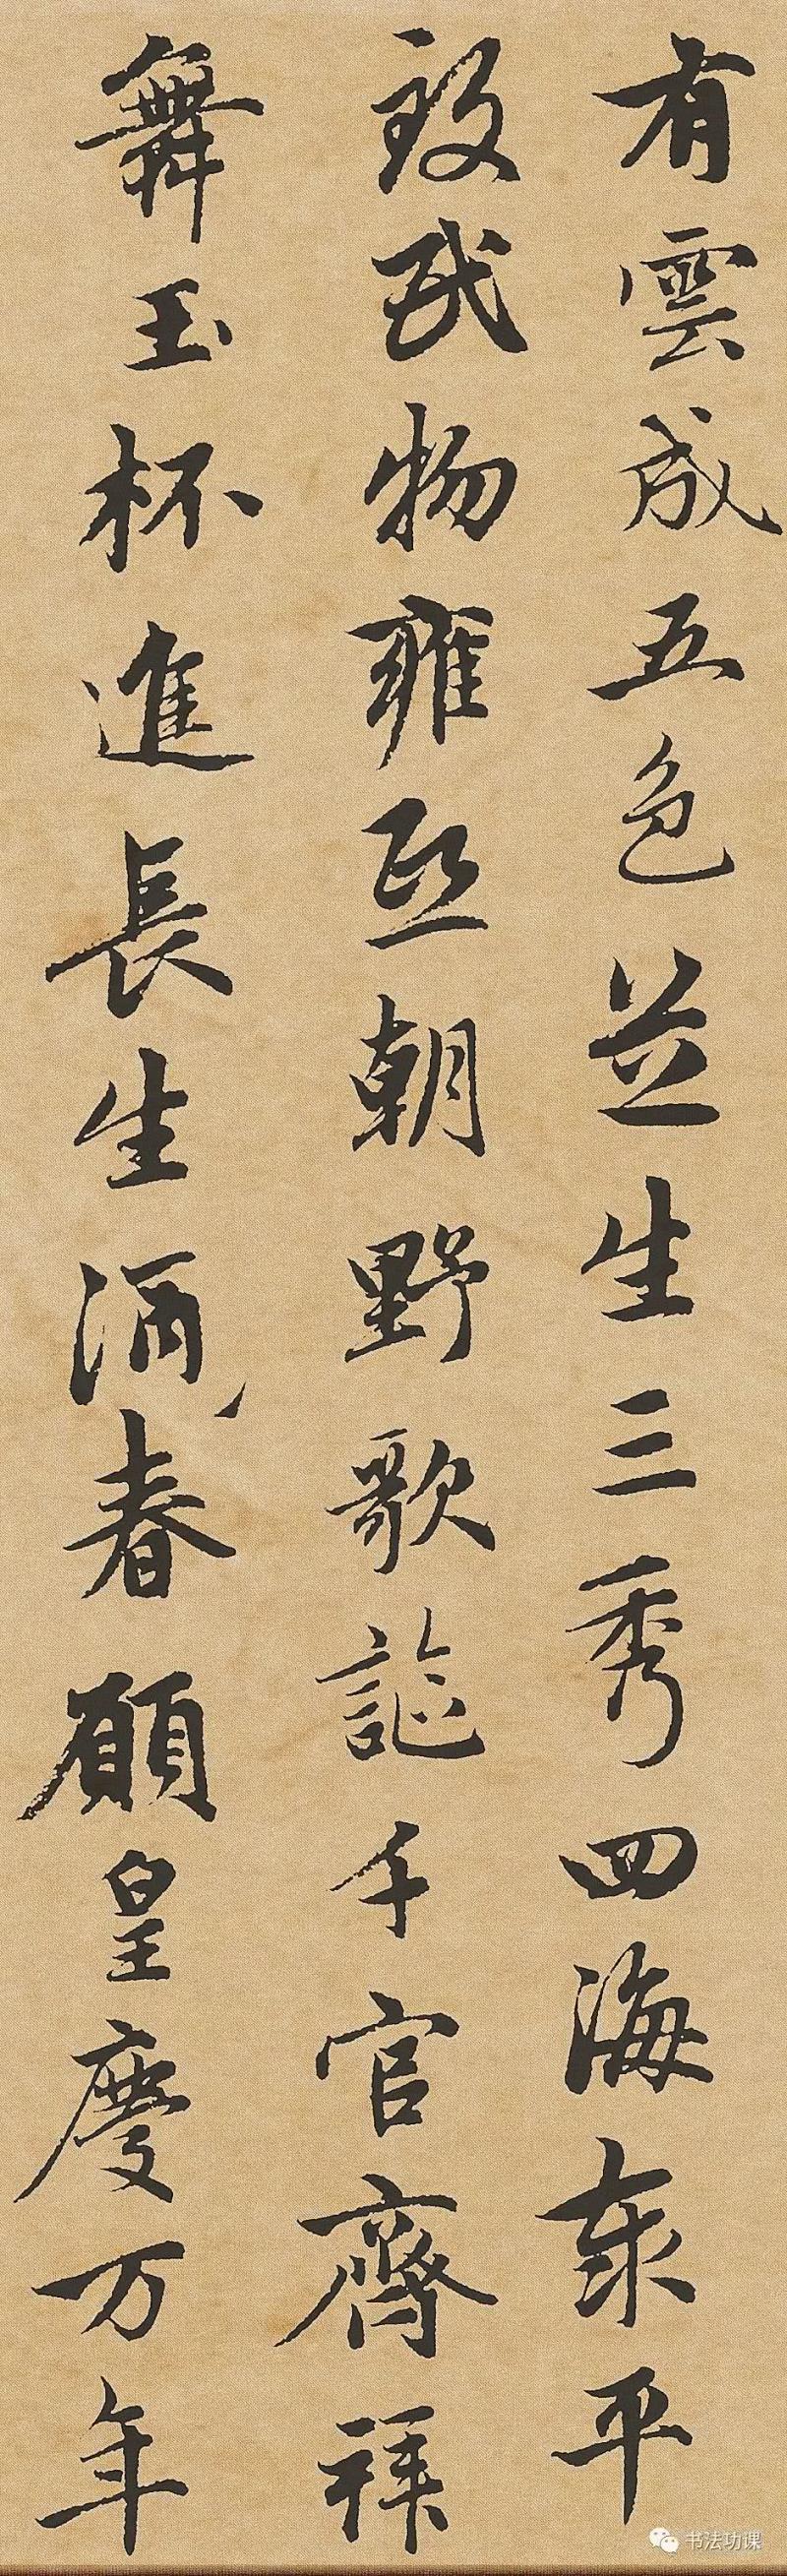 有雲成五色芝生三秀四海泰平
致民物雍熙朝野歌謳千官齊拜
舞玉杯進長生酒春願皇慶万年
书法功课